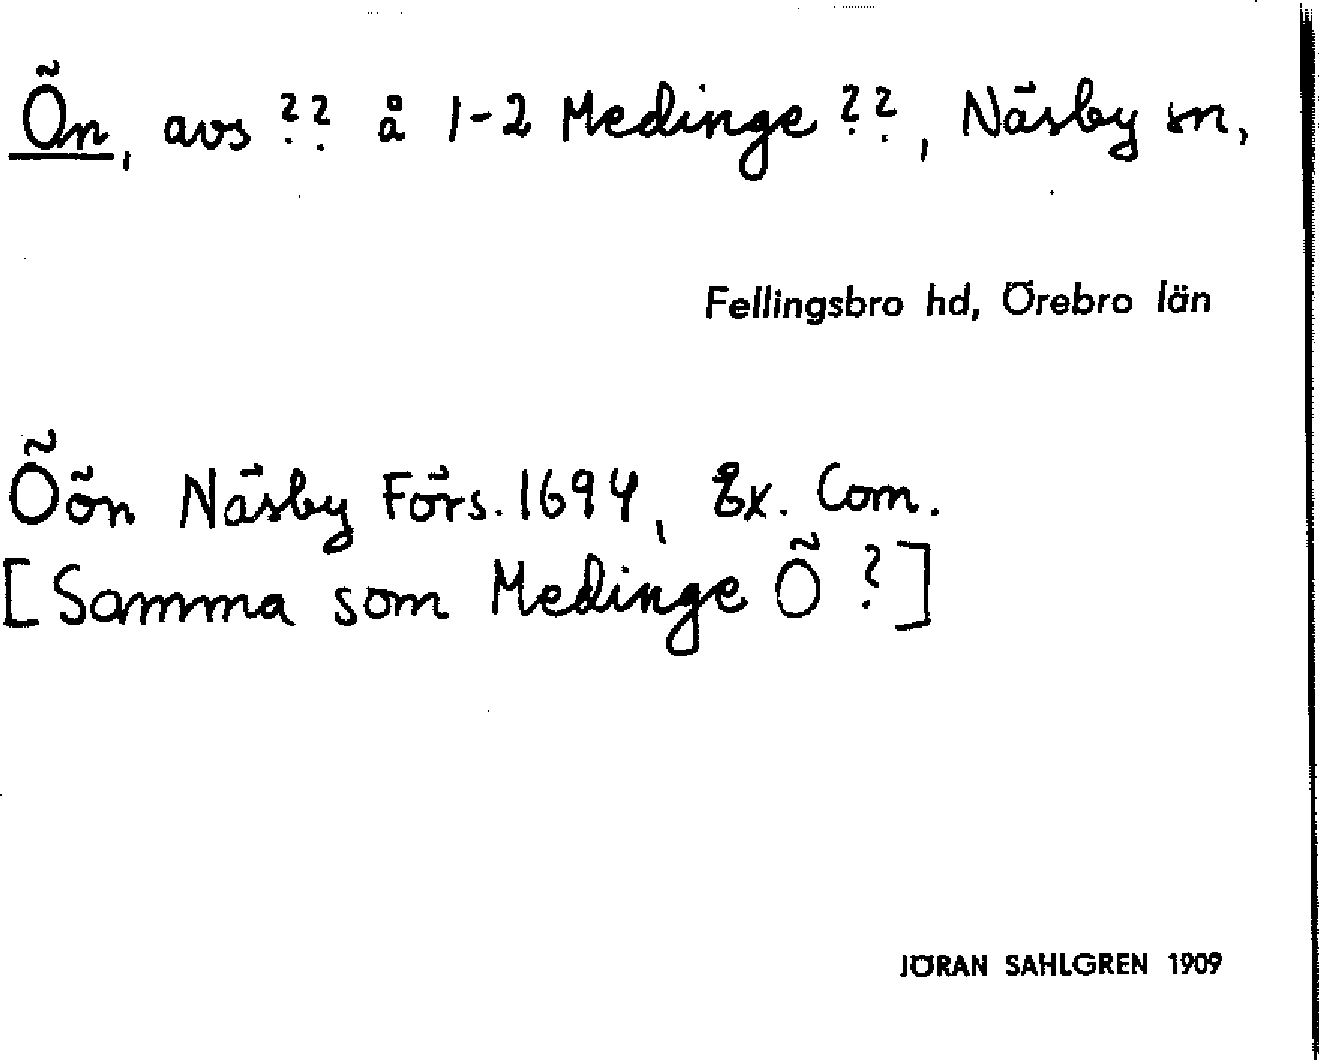 Ön, avs ?? å 1-2 Medinge ??, Näsby sn,
Fellingsbro hd, Örebro län
Öön Näsby Förs. 1694, Ex. Com.
[Samma som Medinge Ö ?]
JÖRAN SAHLGREN 1909